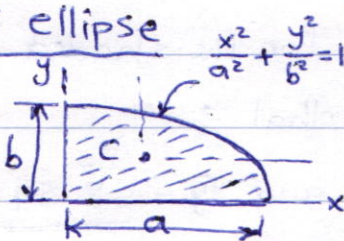 ellipse
x²/a² + y²/b² = 1
y
b
C
x
a